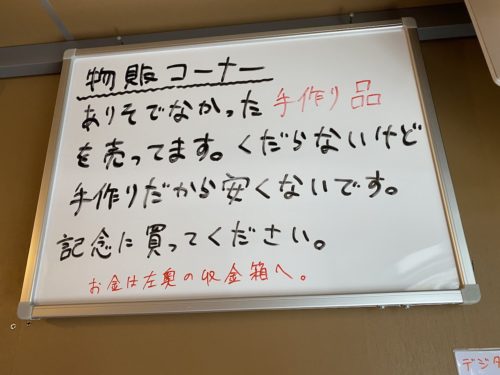 物販コーナー
ありそでなかった手作り品
を売ってます。くだらないけど
手作りだから安くないです。
記念に買ってください。
お金は左奥の収金箱へ。
デジタ